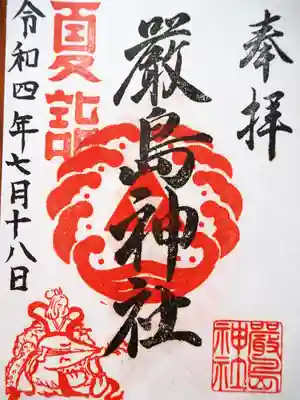 奉拝
厳島神社
夏詣
令和四年七月十八日
嚴島
神社